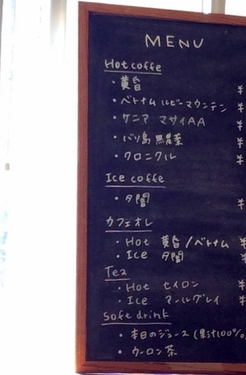 MENU
Hot coffe
・黄昏 ¥
・ベトナム ルビーマウンテン ¥
・ケニア マサイAA ¥
・バリ島 無農薬 ¥
・クロニクル ¥
Ice coffe
・夕闇 ¥
カフェオレ
・Hot 黄昏/ベトナム ¥
・Ice 夕闇 ¥
Tea
・Hot セイロン ¥
・Ice アールグレイ ¥
Sofe drink
・本日のジュース(果汁100%)
・ウーロン茶